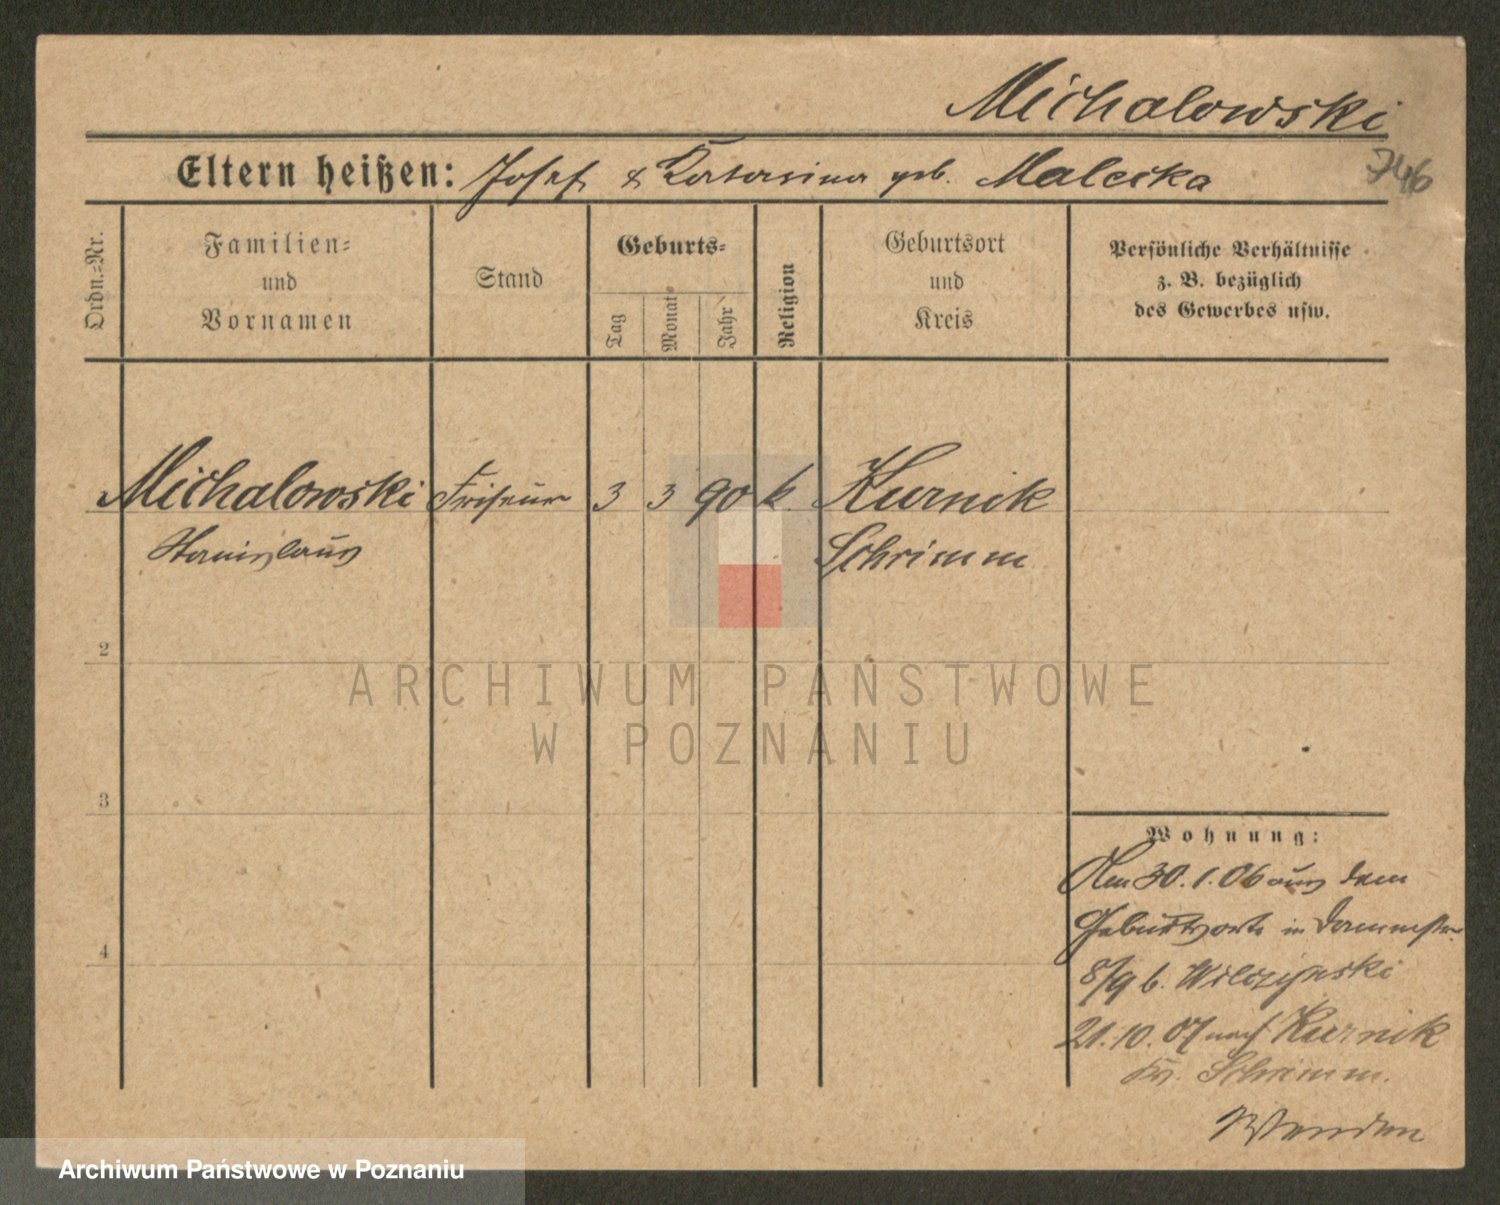 Michalowski
Eltern heißen: Josef & Katarzina geb. Malecka
746
Ordn.=Nr.
Familien=
und
Vornamen
Stand
Geburts=
Tag
Monat
Jahr
Religion
Geburtsort
und
Kreis
Persönliche Verhältnisse
z. B. bezüglich
des Gewerbes usw.
Michalowski Friseur 3 3 90 k. Kurnik
Stanislaus Schrimm
2
3
4
ARCHIWUM PAŃSTWOWE
W POZNANIU
Wohnung:
Am 30.1.06 aus dem
Geburtsorte in
8/9 b. Wilczynski
21.10.07 nach Kurnik
Kr. Schrimm.
Wenden
Archiwum Państwowe w Poznaniu